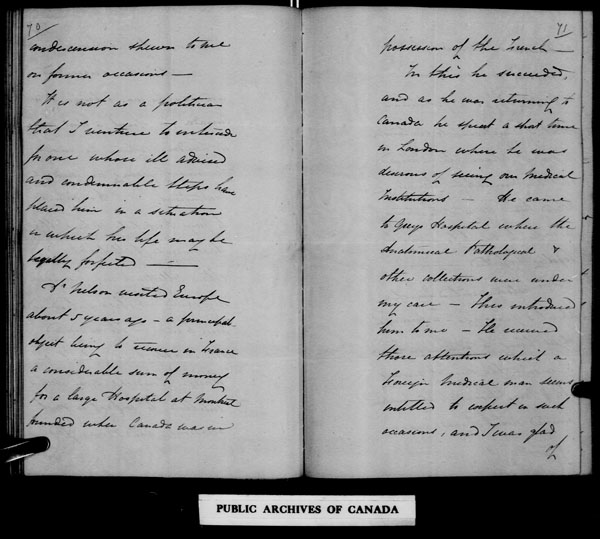 70
condescension shewn to me
on former occasions —
It is not as a politician
that I venture to intercede
for one whose ill advised
and condemnable steps have
placed him in a situation
in which his life may be
legally forfeited —
Dr Nelson visited Europe
about 5 years ago - a principal
object being to recover in France
a considerable sum of money
for a large Hospital at Montreal
founded when Canada was in
71
possession of the French —
In this he succeeded,
and as he was returning to
Canada he spent a short time
in London where he was
desirous of seeing our Medical
Institutions — He came
to Guys Hospital where the
Anatomical Pathological &
other collections were under
my care — This introduced
him to me — He received
those attentions which a
Foreign Medical man seems
entitled to expect on such
occasions, and I was glad
of
PUBLIC ARCHIVES OF CANADA